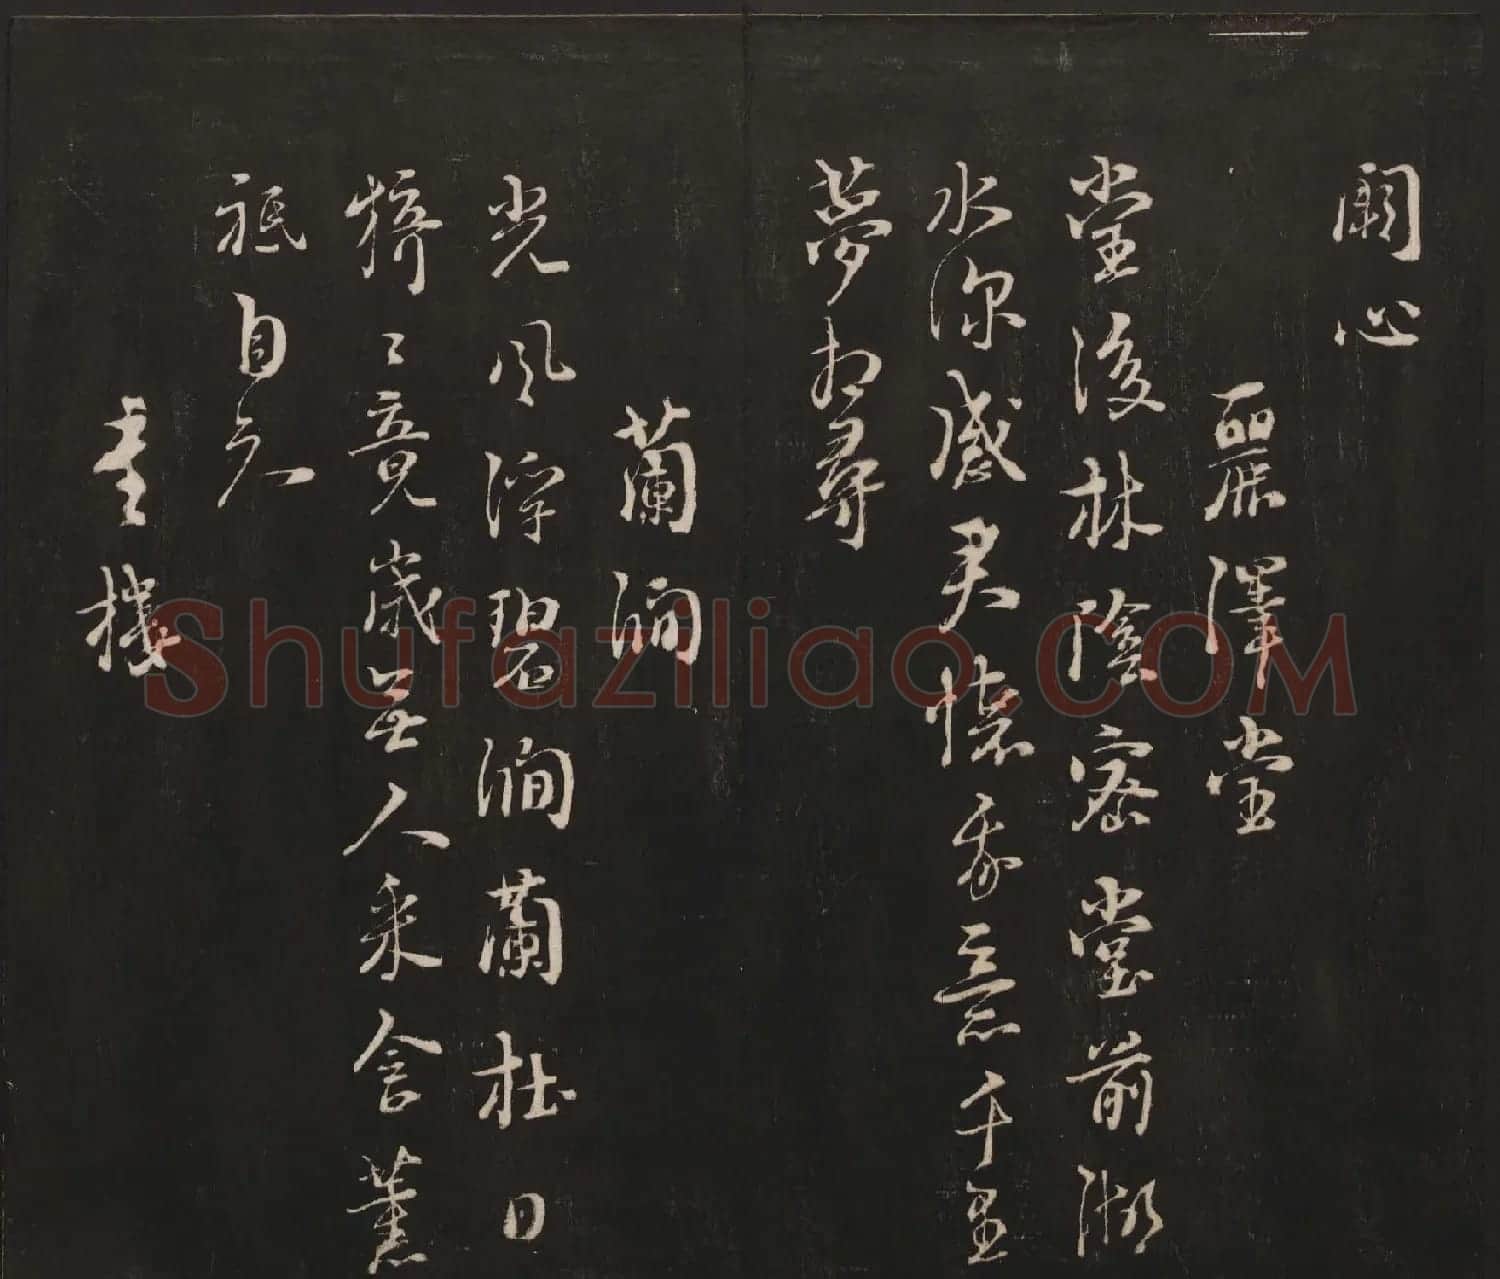 關心
麗澤堂
堂後林陰密堂前湖
水深感君懷我意千里
夢相尋
蘭澗
光風浮碧澗蘭杜日
猗〻竟歲無人采含薰
祗自知
書樓
Shufaziliao.COM